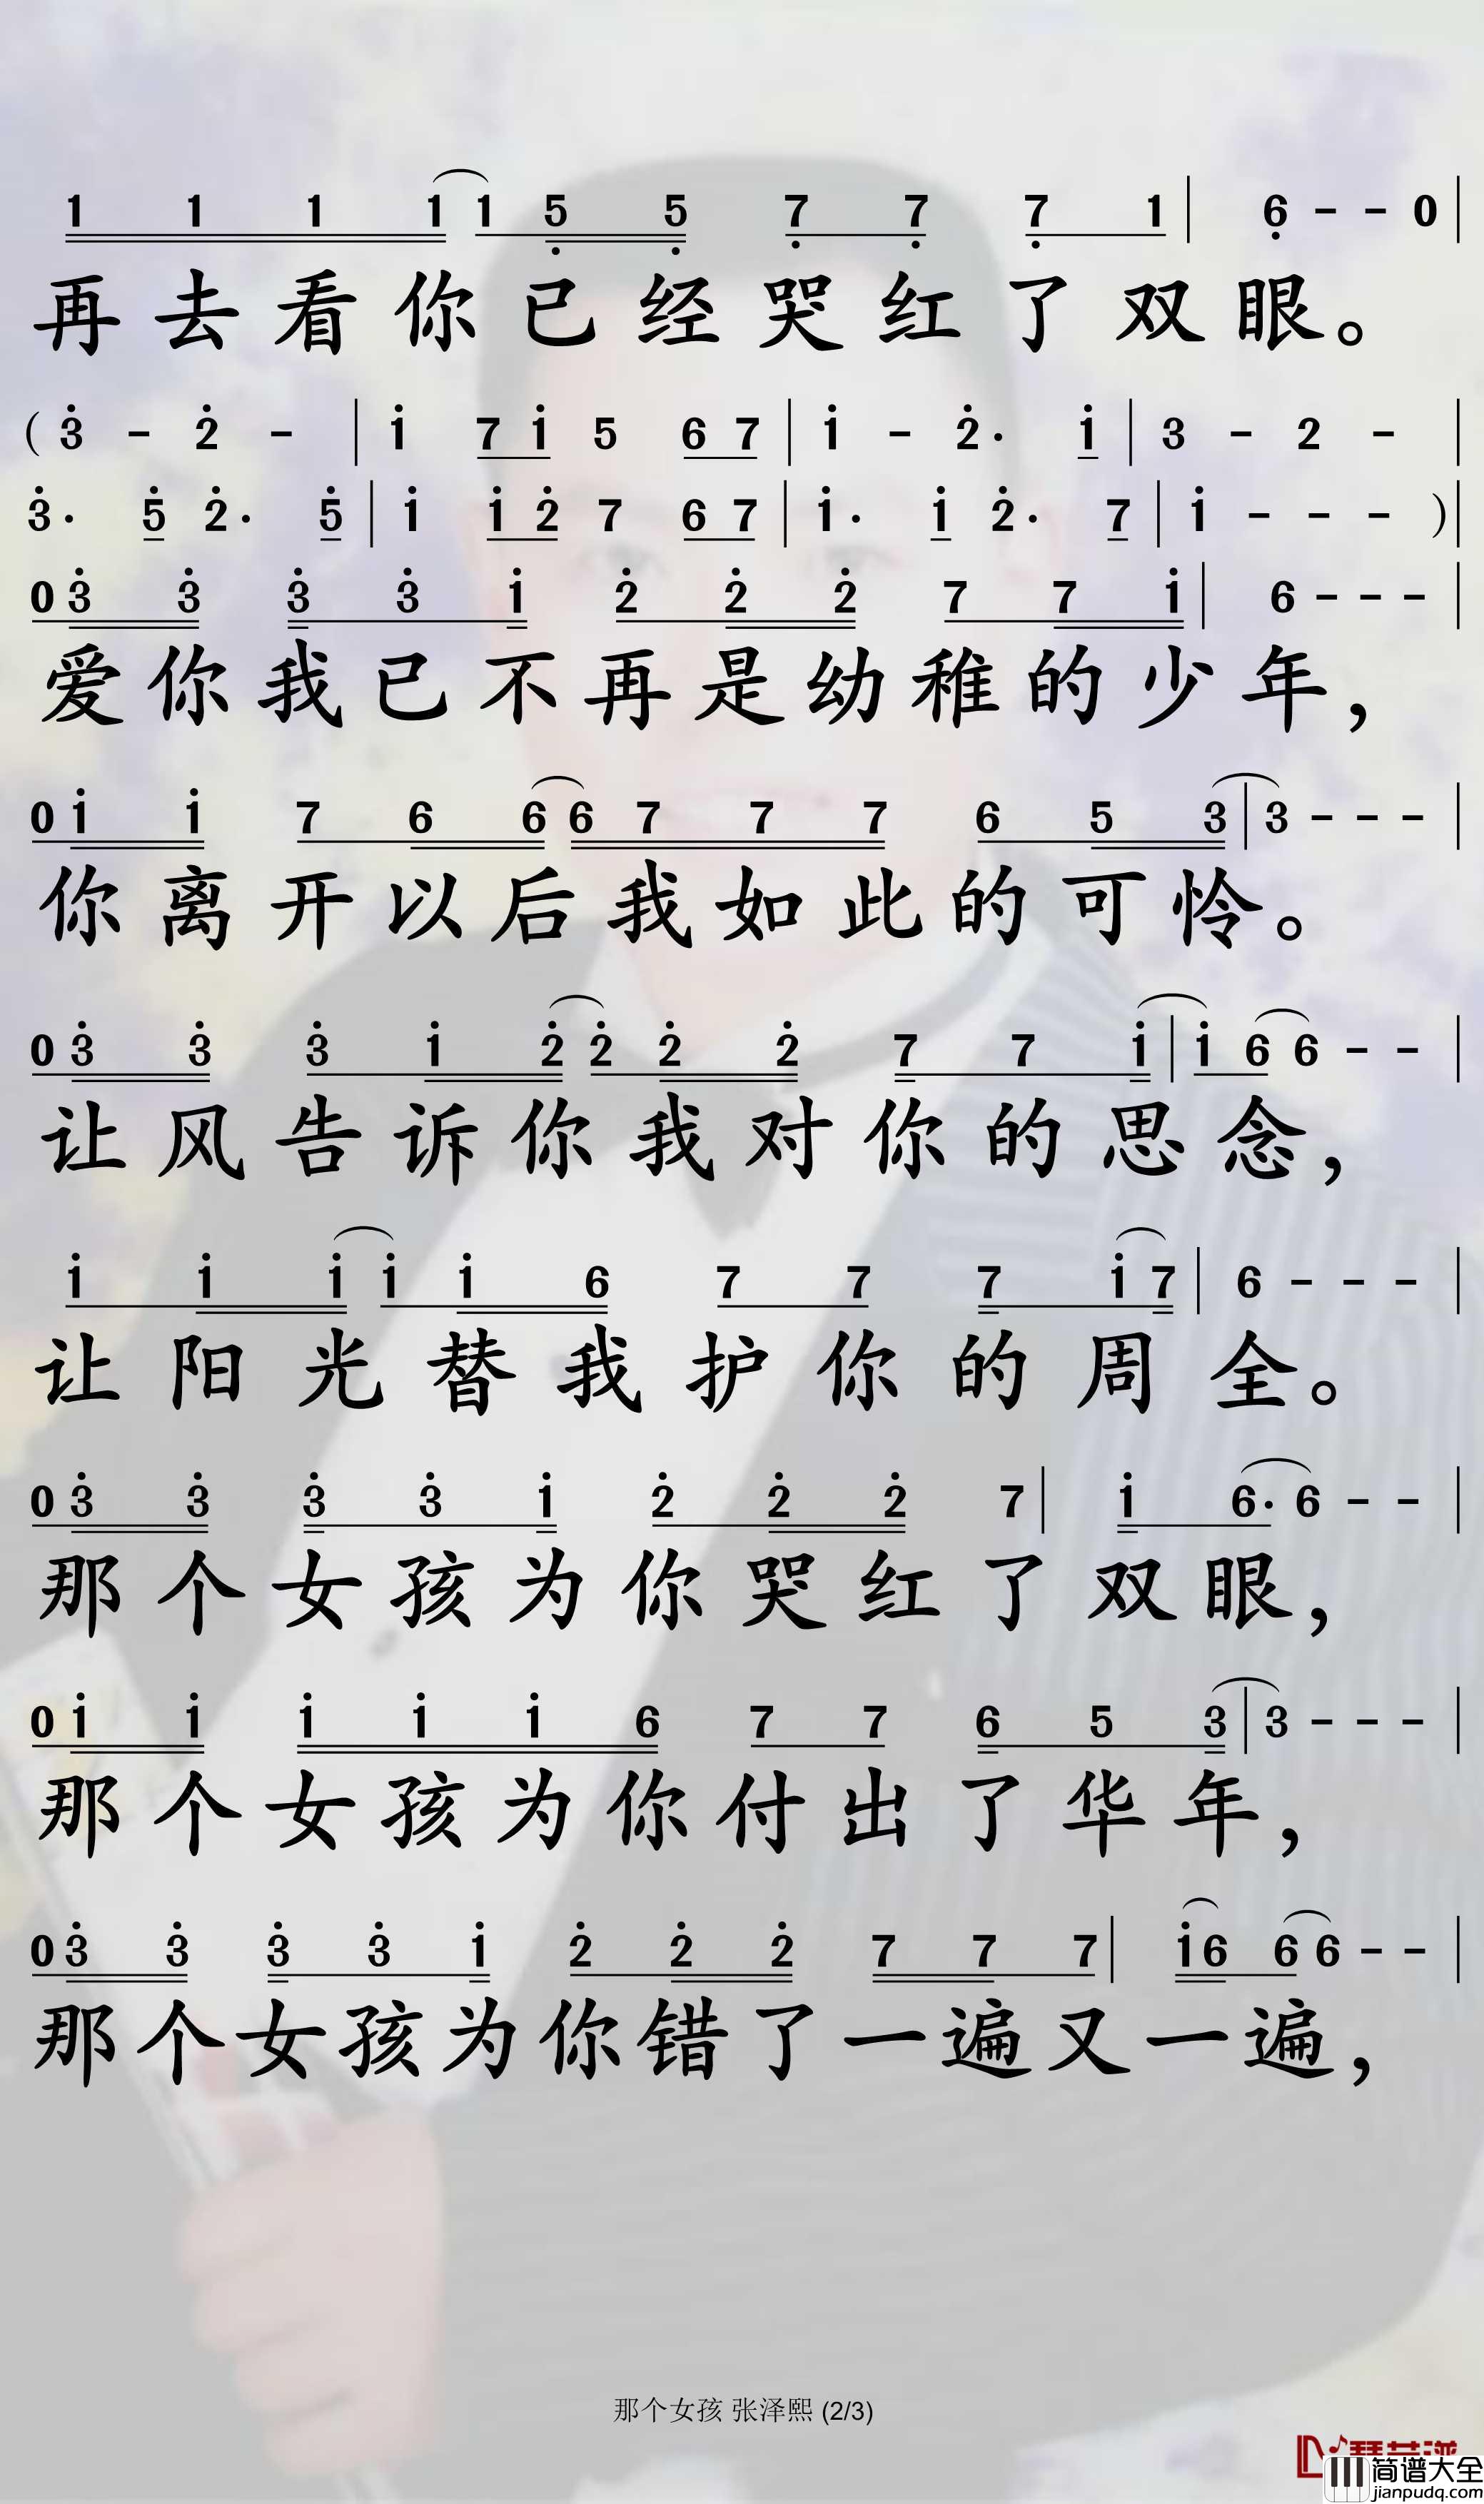 1 1 1 1 1 5 5 7 7 7 1 | 6 - - 0 |
再去看你已经哭红了双眼。
( 3 - 2 - | 1 7 1 5 6 7 | 1 - 2 · 1 | 3 - 2 - |
3 · 5 2 · 5 | 1 1 2 7 6 7 | 1 · 1 2 · 7 | 1 - - - ) |
0 3 3 3 3 1 2 2 2 7 7 1 | 6 - - - |
爱你我已不再是幼稚的少年，
0 1 1 7 6 6 6 7 7 7 6 5 3 | 3 - - - |
你离开以后我如此的可怜。
0 3 3 3 1 2 2 2 2 7 7 1 | 1 6 6 - - |
让风告诉你我对你的思念，
1 1 1 1 1 6 7 7 7 1 7 | 6 - - - |
让阳光替我护你的周全。
0 3 3 3 3 1 2 2 2 7 | 1 6 · 6 - - |
那个女孩为你哭红了双眼，
0 1 1 1 1 1 6 7 7 6 5 3 | 3 - - - |
那个女孩为你付出了华年，
0 3 3 3 3 1 2 2 2 7 7 7 | 1 6 6 6 - - |
那个女孩为你错了一遍又一遍，
那个女孩 张泽熙 (2/3)
简谱大全
jianpudq.com